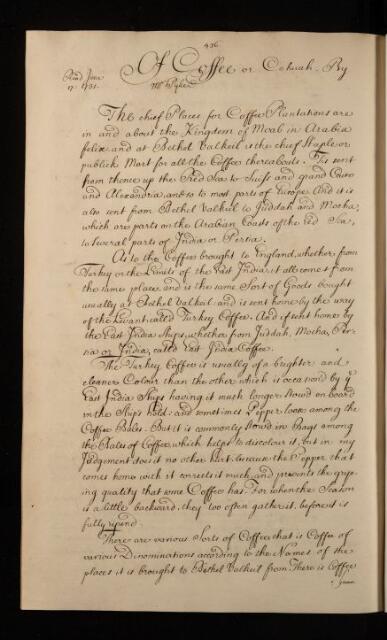 436
Of Coffee or Cohuah. By
Read June
17. 1731.
Mr Pyke
The chief Places for Coffee Plantations are
in and about the Kingdom of Moab in Arabia
felix and at Bethel Valkeil is the chief Staple or
publick Mart for all the Coffee thereabouts. Tis sent
from thence up the Red Sea to Suiss and grand Cairo
and Alexandria and so to most parts of Europe And it is
also sent from Bethel Valkeil to Juddah and Mocha,
which are ports on the Arabian Coasts of the red Sea,
to several parts of India or Persia.
As to the Coffee brought to England, whether from
Turkey or the Limits of the East Indias, it all comes from
the same place, and is the same Sort of Goods bought
usually at Bethel Valkeil and is sent home by the way
of the Levant called Turkey Coffee. And if sent home by
the East India Ships, whether from Juddah, Mocha, Per-
sia or India, called East India Coffee.
The Turkey Coffee is usually of a brighter and
cleaner Colour than the other which is occasion'd by ye
East India Ships having it much longer stow'd on board
in the Ships hold, and sometimes Pepper loose among the
Coffee Bales. But it is commonly stow'd in Bags among
the Bales of Coffee, which helps to discolour it, but in my
Judgement does it no other hurt, because the Pepper that
comes home with it corrects it much, and prevents the grip-
ing quality that some Coffee has. For when the Season
is a little backward, they too often gather it, before it is
fully ripend.
There are various Sorts of Coffee, that is Coffee of
various Denominations according to the Names of the
places it is brought to Bethel Valkeil from. There is Coffee